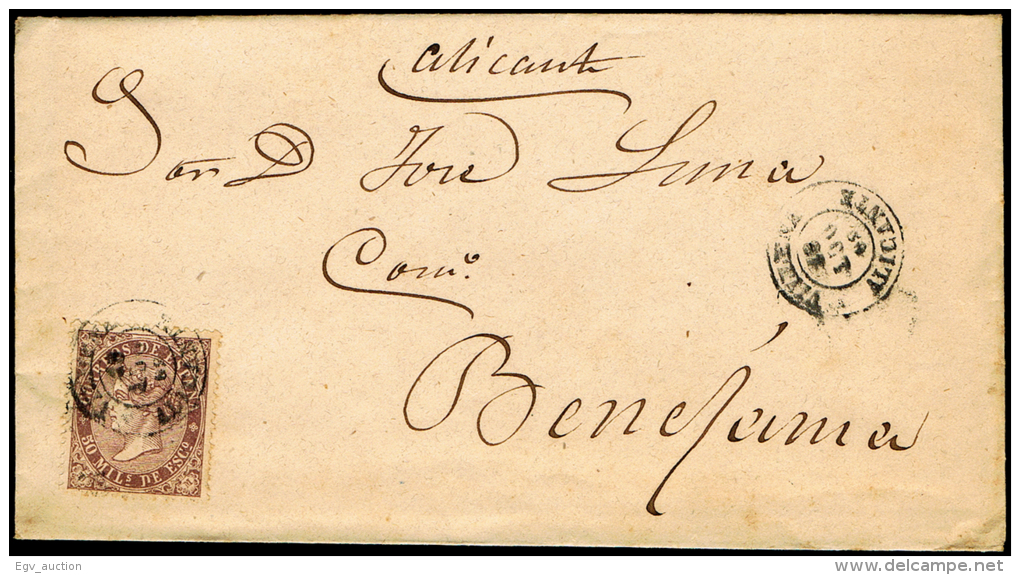 Alicante
Sor D José Luna
Como.
Benejama
VILLENA
ALICANTE
OCT
69
CORREOS DE ESPAÑA
50 MILS DE ESCO
Egv_auction
www.delcampe.net